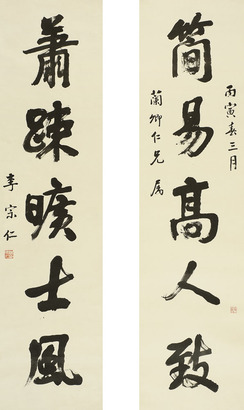 丙寅春三月
簡易高人致
蘭卿仁兄屬
蕭疎曠士風
李宗仁